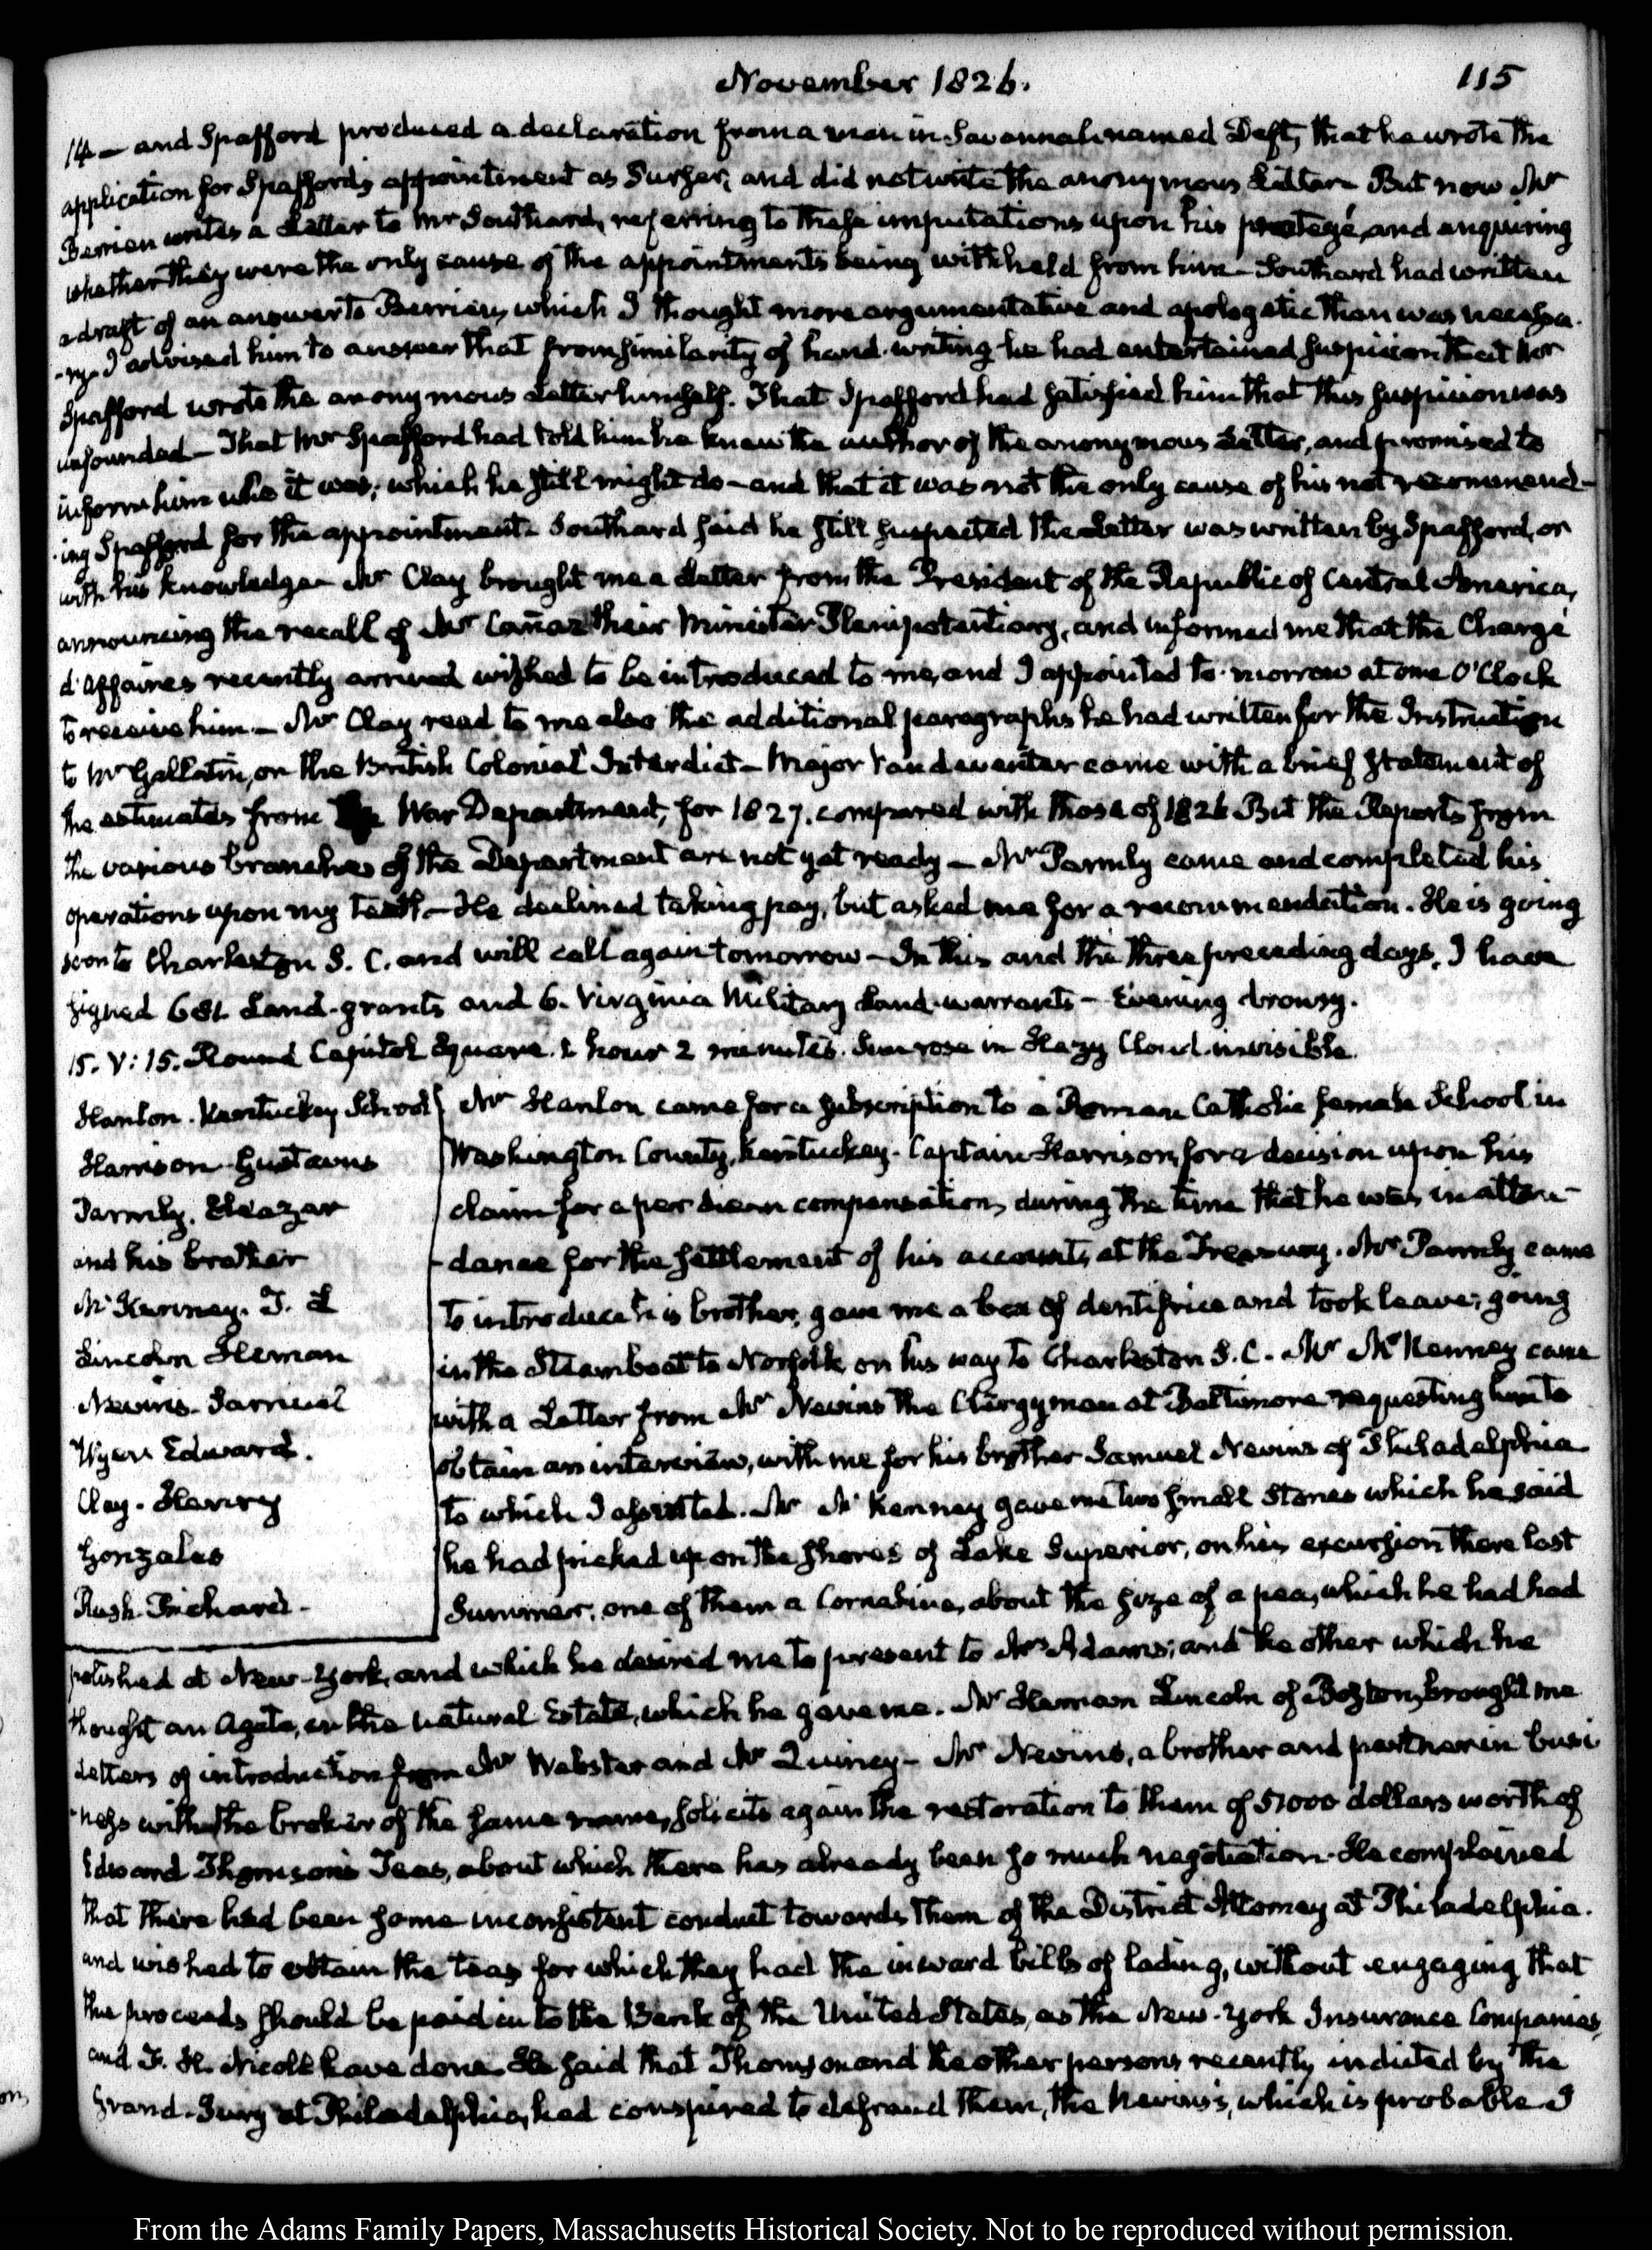 November 1826.
115
14 — and Spafford produced a declaration from a man in Savannah named Deft, that he wrote the
application for Spafford's appointment as Purser, and did not write the anonymous Letter — But now Mr
Berrien writes a Letter to Mr Southard, referring to these imputations upon his protegé, and enquiring
whether they were the only cause of the appointments being withheld from him — Southard had written
a draft of an answer to Berrien, which I thought more argumentative and apologetic than was necessa-
-ry. I advised him to answer that from similarity of hand-writing he had entertained suspicion that Mr
Spafford wrote the anonymous Letter himself. That Spafford had satisfied him that this suspicion was
unfounded — That Mr Spafford had told him he knew the author of the anonymous Letter, and promised to
inform him who it was; which he still might do — and that it was not the only cause of his not recommend-
-ing Spafford for the appointment — Southard said he still suspected the Letter was written by Spafford, or
with his knowledge — Mr Clay brought me a Letter from the President of the Republic of Central America,
announcing the recall of Mr Cañaz their Minister Plenipotentiary, and informed me that the Chargé
d'Affaires recently arrived wished to be introduced to me, and I appointed to-morrow at one O'Clock
to receive him — Mr Clay read to me also the additional paragraphs he had written for the Instruction
to Mr Gallatin, on the British Colonial Interdict — Major Vandeventer came with a brief statement of
the estimates from the War Department, for 1827. compared with those of 1826 But the Reports from
the various branches of the Department are not yet ready — Mr Parmly came and completed his
operations upon my teeth — He declined taking pay, but asked me for a recommendation. He is going
soon to Charleston S. C. and will call again tomorrow — In this and the three preceding days, I have
signed 681 Land-grants and 6. Virginia Military Land-warrants — Evening drowsy.
15. V: 15. Round Capitol Square. 1 hour 2 minutes. Sun rose in Hazy Cloud invisible.
Hanlon. Kentucky School
Harrison Gustavus
Parmly. Eleazar
and his brother
McKenney. T. L
Lincoln Heman
Nevins. Samuel
Wyer Edward.
Clay. Henry
Gonzales
Rush. Richard.
Mr Hanlon came for a subscription to a Roman Catholic female School in
Washington County, Kentuckey. Captain Harrison, for a decision upon his
claim for a per diem compensation, during the time that he was in atten-
-dance for the settlement of his accounts, at the Treasury. Mr Parmly came
to introduce his brother, gave me a box of dentifrice and took leave; going
in the Steamboat to Norfolk on his way to Charleston S. C. Mr McKenney came
with a Letter from Mr Nevins the Clergyman at Baltimore requesting him to
obtain an interview, with me for his brother Samuel Nevins of Philadelphia
to which I assented. Mr McKenney gave me two small Stones which he said
he had picked up on the shores of Lake Superior, on his excursion there last
Summer, one of them a Corneline, about the size of a pea, which he had had
polished at New-York, and which he desired me to present to Mrs Adams; and the other which he
thought an Agate, in the natural Estate, which he gave me. Mr Heman Lincoln of Boston, brought me
Letters of introduction from Mr Webster and Mr Quincy — Mr Nevins, a brother and partner in busi
-ness with the broker of the same name, solicits again the restoration to them of 51000 dollars worth of
Edward Thomson's Teas, about which there has already been so much negotiation. He complained
that there had been some inconsistent conduct towards them of the District Attorney at Philadelphia.
and wished to obtain the teas for which they had the inward bills of lading, without engaging that
the proceeds should be paid in to the Bank of the United States, as the New-York Insurance Companies,
and F. H. Nicoll have done. He said that Thomson and the other persons recently indicted by the
Grand-Jury at Philadelphia, had conspired to defraud them, the Nevins's, which is probable. I
From the Adams Family Papers, Massachusetts Historical Society. Not to be reproduced without permission.